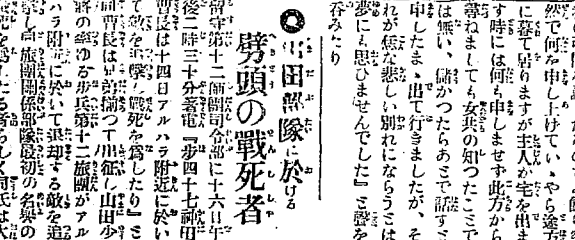 然で何を申上げてい、やら途方
に暮て居りますが主人が宅を出ま
す時には何も申しませず此方から
尋ねましても女共の知つたことで
は無い、儲かつたらあとで話すと
申したま、出て行きましたが、そ
れが恁な悲しい別れにならうとは
夢にも思ひませんでした』と聲を
呑みたり
◎山田部隊に於ける
劈頭の戰死者
留守第十二師團司令部に十六日午
後二時三十分著電『步四十七神田
曹長は十四日アルハラ附近に於い
て敵を追擊し戰死を爲したり』と
曹長は兄弟揃つて出征し山田少
將の率ゆる步兵第十二旅團がアル
ハラ附近に於いて退却する敵を追
擊し同旅團關係部隊最初の名譽の
戰死を爲したる者らしく同氏は大